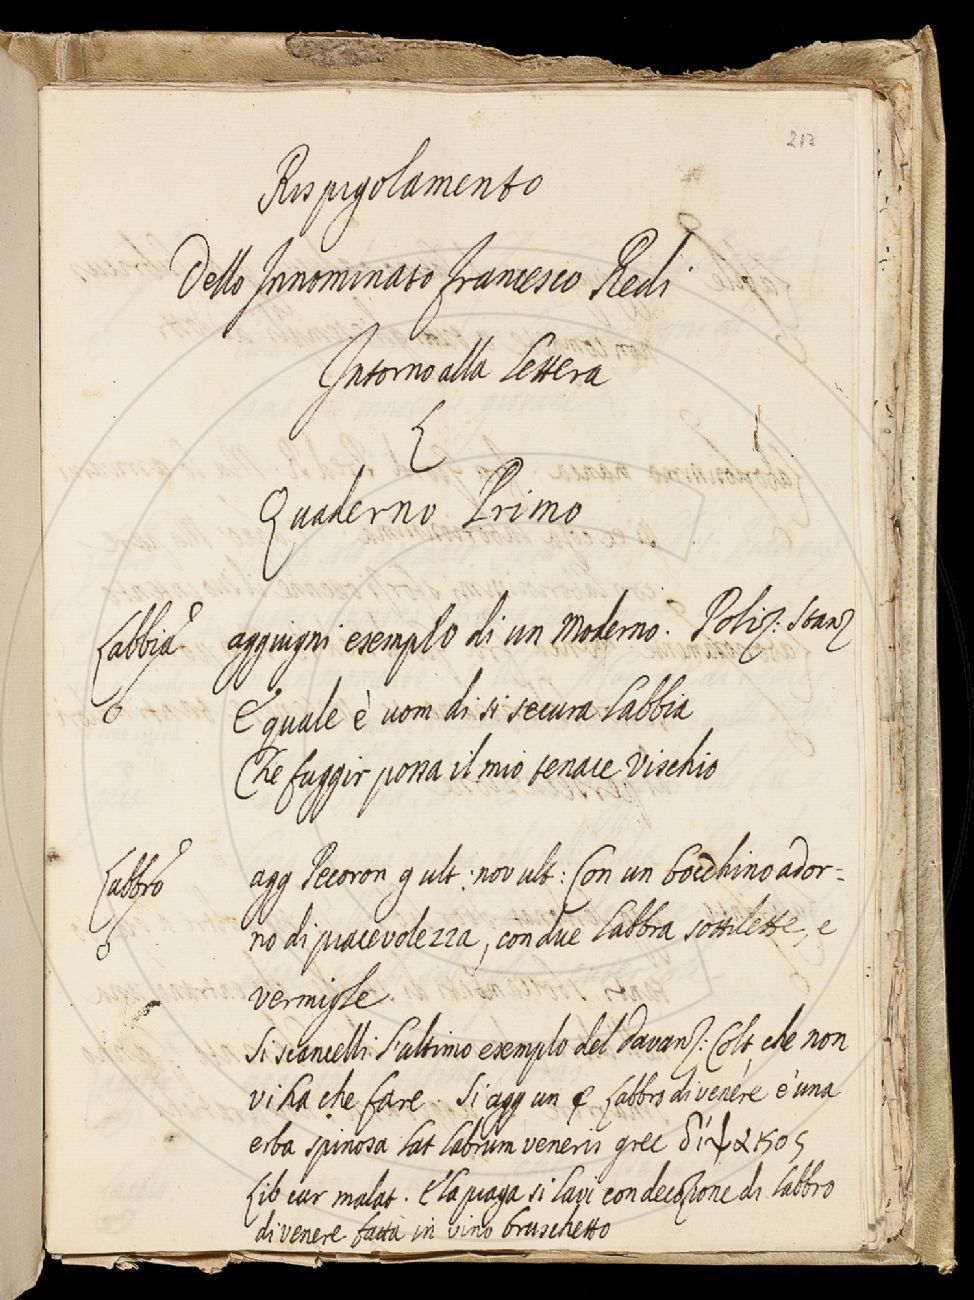 213
Rispigolamento
Dello Innominato Francesco Redi
Intorno alla Lettera
L
Quaderno Primo
Labbia aggiugni esempio di un Moderno. Poliz: Stanz
E quale è uom di si secura labbia
Che fuggir possa il mio tenace vischio
Labbro agg Pecoron g ult: nov ult: Con un bocchino ador=
no di piacevolezza, con due labbra sottilette, e
vermigle
Si scancelli l'ultimo esempio del Davanz: Colt, che non
vi ha che fare. Si agg un Labbro di venere è una
erba spinosa lat labrum veneris grec δίψακος
Lib cur malat. E la piaga si lavi con decozione di labbro
di venere fatta in vino bruschetto